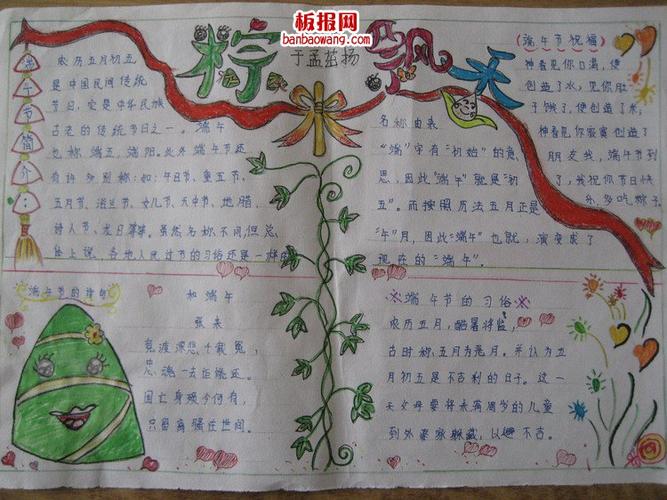 板报网
banbaowang.com
粽飘天
于孟茹扬
端午节简介:
农历五月初五
是中国民间传统
节日,它是中华民族
古老的传统节日之一。端午
也称端五,端阳。此外端午节还
有许多别称:如:午日节、重五节、
五月节、浴兰节、女儿节、天中节、地腊、
诗人节、龙日等等。虽然名称不同,但总
体上说,各地人民过节的习俗还是一样的
名称由来
“端”字有“初始”的意
思,因此“端午”就是“初
五”。而按照历法五月正是
“午”月,因此“端午”也就,演变成了
现在的“端午”。
(端午节祝福)
神看见你口渴,便
创造了水,神看见你肚
子饿了,便创造了米,
神看见你寂寞创造了
朋友我,端午节到
了,我祝你节日快
乐,多吃粽子
端午节的诗句
和端午
张耒
竞渡深悲千载冤,
忠魂一去讵能还。
国亡身殒今何有,
只留离骚在世间。
※端午节的习俗※
农历五月,酷暑将临,
古时称五月为恶月。并认为五
月初五是不吉利的日子。这一
天父母要将未满周岁的儿童
到外婆家躲藏,以避不吉。